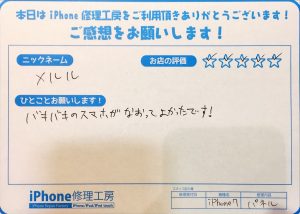 本日は iPhone 修理工房をご利用頂きありがとうございます！
ご感想をお願いします！
ニックネーム
メルル
お店の評価
ひとことお願いします！
バキバキのスマホがなおってよかったです！
iPhone修理工房
iPhone Repair Factory
iPhone7
パネル